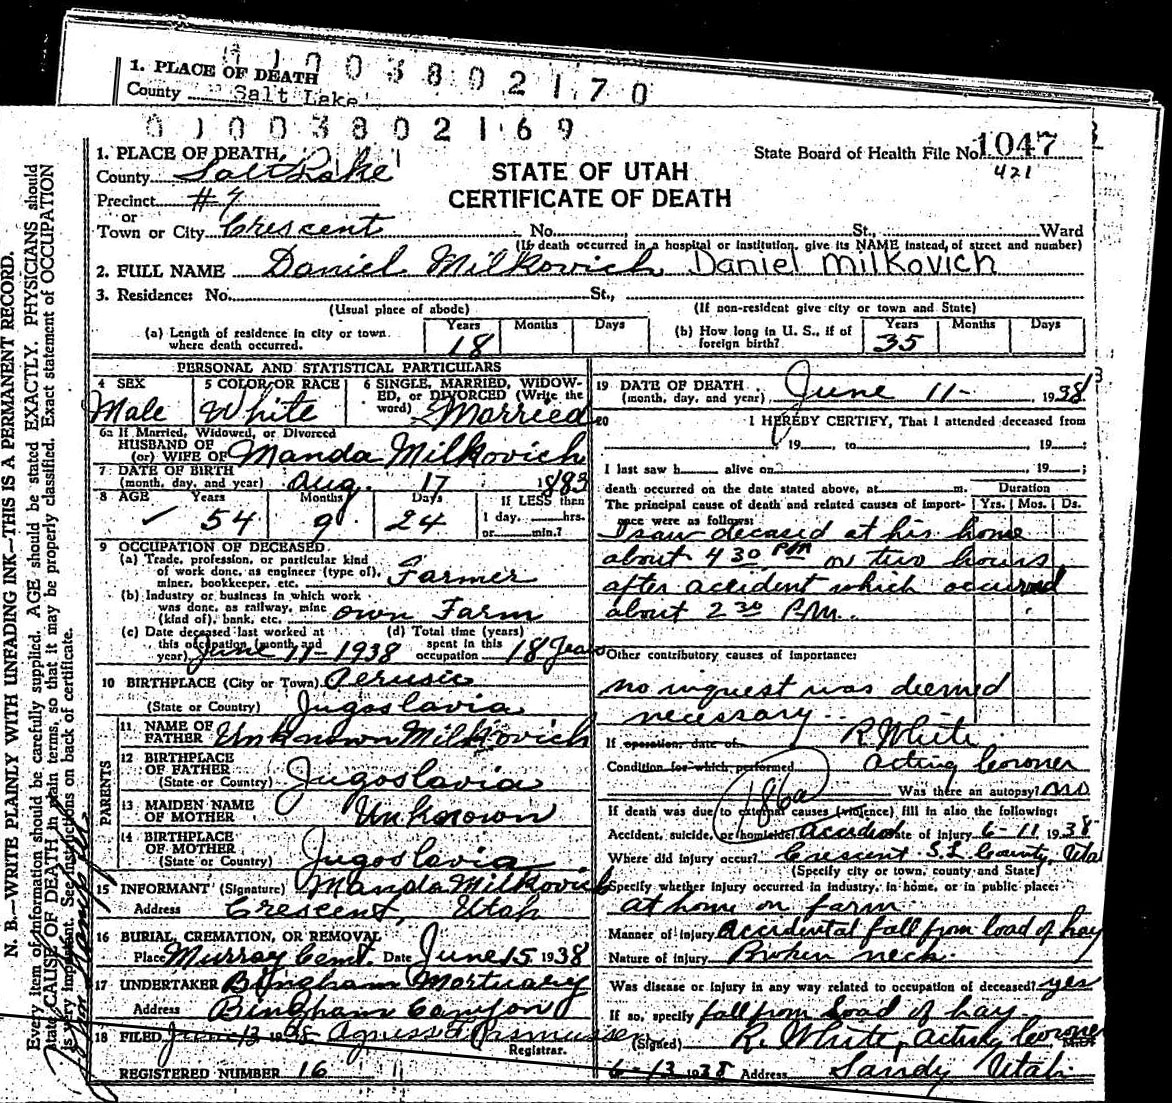 1. PLACE OF DEATH
01003802170
County Salt Lake
01003802169
1. PLACE OF DEATH
County Salt Lake
Precinct #7
or
Town or City Crescent No. St., Ward
(If death occurred in a hospital or institution, give its NAME instead of street and number)
STATE OF UTAH
CERTIFICATE OF DEATH
State Board of Health File No. 1047
421
2. FULL NAME Daniel Milkovich Daniel Milkovich
3. Residence: No. St.,
(Usual place of abode) (If non-resident give city or town and State)
(a) Length of residence in city or town where death occurred. Years 18 Months Days
(b) How long in U. S., if of foreign birth? Years 35 Months Days
PERSONAL AND STATISTICAL PARTICULARS
4 SEX Male
5 COLOR OR RACE White
6 SINGLE, MARRIED, WIDOWED, or DIVORCED (Write the word) Married
6a If Married, Widowed, or Divorced
HUSBAND OF
(or) WIFE OF Manda Milkovich
7 DATE OF BIRTH
(month, day, and year) Aug. 17 1883
8 AGE Years 54 Months 9 Days 24 If LESS than 1 day, hrs. or min.?
9 OCCUPATION OF DECEASED
(a) Trade, profession, or particular kind of work done, as engineer (type of), miner, bookkeeper, etc. Farmer
(b) Industry or business in which work was done, as railway, mine (kind of), bank, etc. own Farm
(c) Date deceased last worked at this occupation (month and year) June 11-1938
(d) Total time (years) spent in this occupation 18 Years
10 BIRTHPLACE (City or Town) Perusic
(State or Country) Jugoslavia
PARENTS
11 NAME OF FATHER Unknown Milkovich
12 BIRTHPLACE OF FATHER (State or Country) Jugoslavia
13 MAIDEN NAME OF MOTHER Unknown
14 BIRTHPLACE OF MOTHER (State or Country) Jugoslavia
15 INFORMANT (Signature) Manda Milkovich
Address Crescent, Utah
16 BURIAL, CREMATION, OR REMOVAL
Place Murray Cemt. Date June 15 1938
17 UNDERTAKER Bingham Mortuary
Address Bingham Canyon
18 FILED June 13 1938 Agnes Rasmussen
Registrar.
REGISTERED NUMBER 16
19 DATE OF DEATH
(month, day, and year) June 11- , 1938
20 I HEREBY CERTIFY, That I attended deceased from
, 19 , to , 19 ;
I last saw h alive on , 19 ;
death occurred on the date stated above, at m.
The principal cause of death and related causes of importance were as follows:
Duration
Yrs. Mos. Ds.
I saw deceased at his home
about 4 30 PM or two hours
after accident which occurred
about 2 30 P.M.
Other contributory causes of importance:
no inquest was deemed
necessary
R White
If operation, date of
Condition for which performed Acting Coroner
Was there an autopsy? no
186a
If death was due to external causes (violence) fill in also the following:
Accident, suicide, or homicide? Accident Date of injury 6-11 1938
Where did injury occur? Crescent S.L County, Utah
(Specify city or town, county and State)
Specify whether injury occurred in industry, in home, or in public place:
at home on farm
Manner of injury Accidental fall from load of hay
Nature of injury Broken neck.
Was disease or injury in any way related to occupation of deceased? yes
If so, specify fall from load of hay
(Signed) R. White, Acting Coroner
6-13 1938 Address Sandy Utah
N. B.—WRITE PLAINLY WITH UNFADING INK—THIS IS A PERMANENT RECORD.
Every item of information should be carefully supplied. AGE should be stated EXACTLY. PHYSICIANS should
state CAUSE OF DEATH in plain terms, so that it may be properly classified. Exact statement of OCCUPATION
is very important. See instructions on back of certificate.